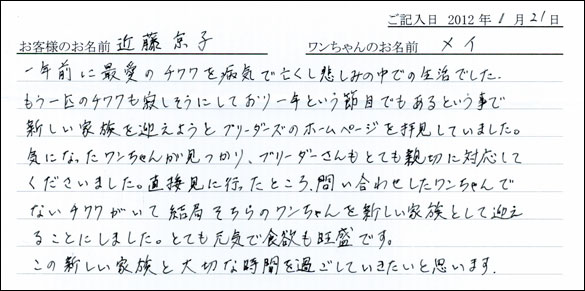 ご記入日 2012年1月21日
お客様のお名前 近藤京子 ワンちゃんのお名前 メイ
一年前に最愛のチワワを病気で亡くし悲しみの中での生活でした.
もう一匹のチワワも寂しそうにしており一年という節目でもあるという事で
新しい家族を迎えようとブリーダーズのホームページを拝見していました。
気になったワンちゃんが見つかり、ブリーダーさんもとても親切に対応して
くださいました。直接見に行ったところ、問い合わせしたワンちゃんで
ないチワワがいて結局そちらのワンちゃんを新しい家族として迎え
ることにしました。とても元気で食欲も旺盛です。
この新しい家族と大切な時間を過ごしていきたいと思います.